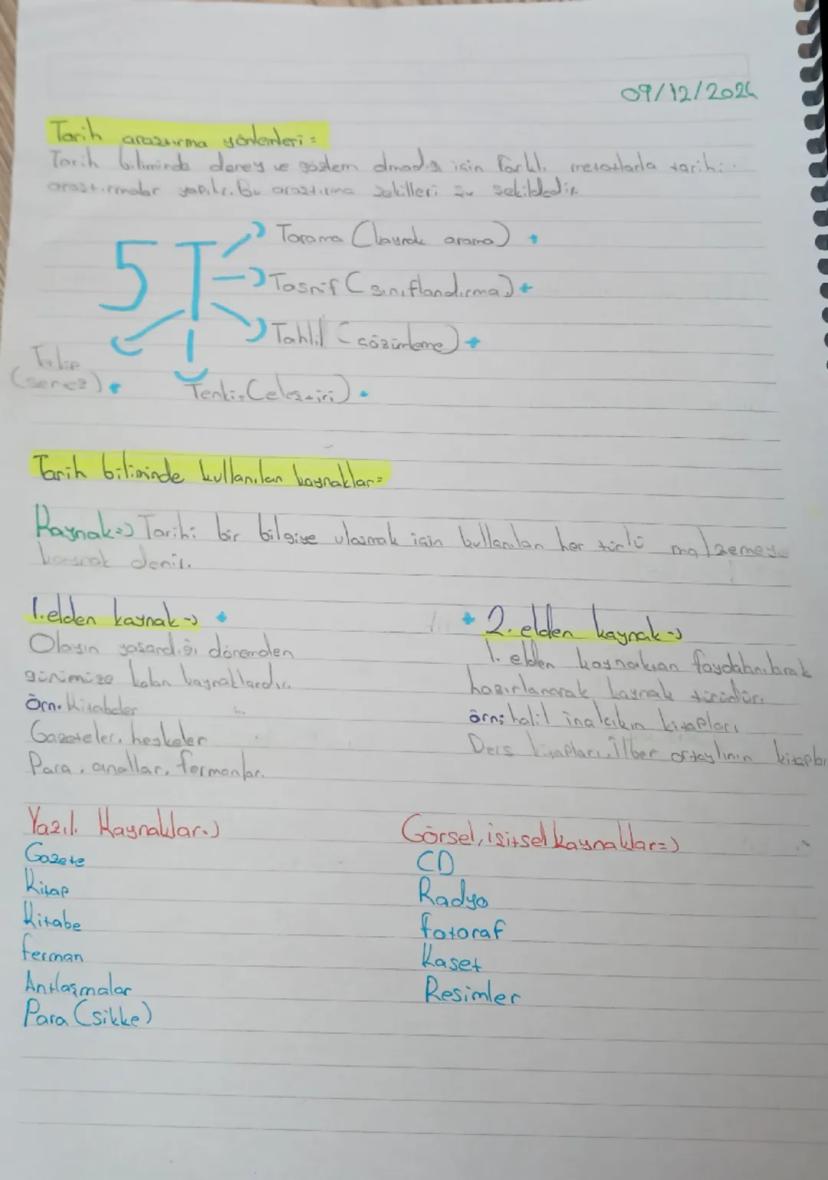 09/12/2024
Tarih araştırma yöntemleri =
Tarih biliminde deney ve gözlem olmadığı için farklı metotlarla tarihi
araştırmalar yapılır. Bu araştırma şekilleri şu şekildedir.
5T
Tarama (kaynak arama)
Tasnif (sınıflandırma)
Tahlil (çözümleme)
Terkip
(sentez)
Tenkit (eleştiri)
Tarih biliminde kullanılan kaynaklar=
Kaynak=) Tarihi bir bilgiye ulaşmak için kullanılan her türlü malzemeye
kaynak denir.
1.elden kaynak->
Olayın yaşandığı dönemden
günümüze kalan kaynaklardır.
örn. Kitabeler
Gazeteler, heykeller
Para, anallar, fermanlar.
2. elden kaynak->
1. elden kaynaktan faydalanılarak
hazırlanarak kaynak türüdür.
örn: halil inalcıkın kitapları
Ders kitapları, İlber ortaylının kitapları
Yazılı Kaynaklar=)
Gazete
Kitap
Kitabe
ferman
Antlaşmalar
Para (sikke)
Görsel, işitsel kaynaklar=)
CD
Radyo
fotoraf
Kaset
Resimler